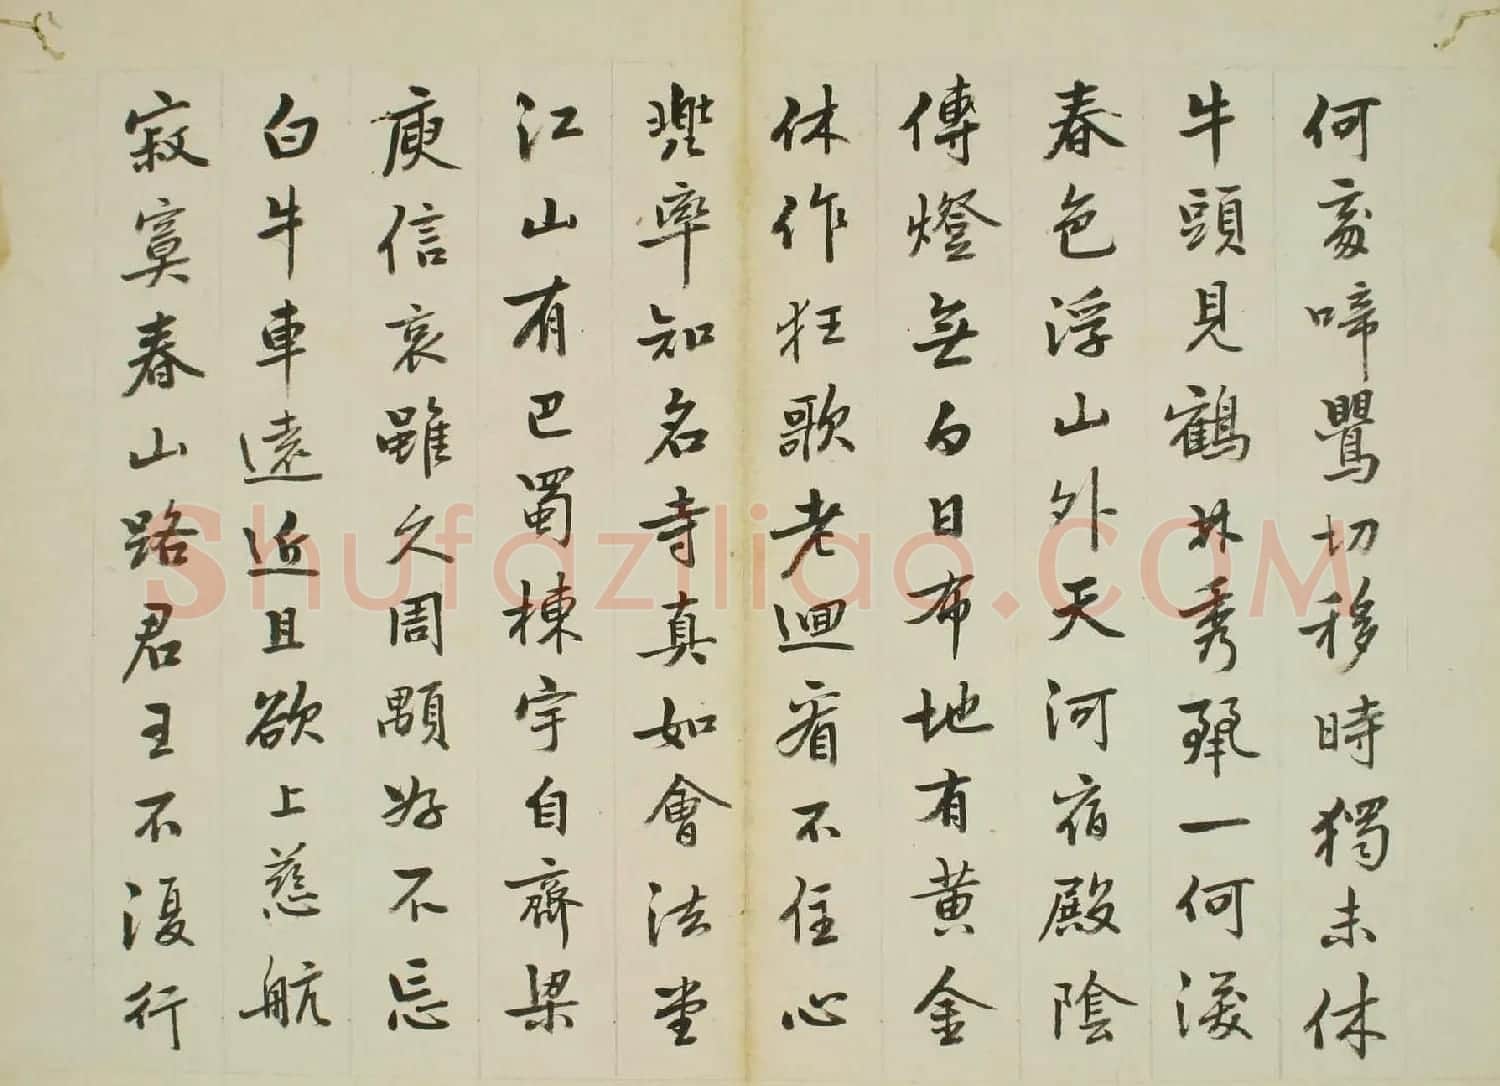 何處啼鶯切移時獨未休
牛頭見鶴林秀麗一何深
春色浮山外天河宿殿陰
傳燈無白日布地有黃金
休作狂歌老迴看不住心
兜率知名寺真如會法堂
江山有巴蜀棟宇自齊梁
庾信哀雖久周顒好不忘
白牛車遠近且欲上慈航
寂寞春山路君王不復行
Shufaziliao.COM